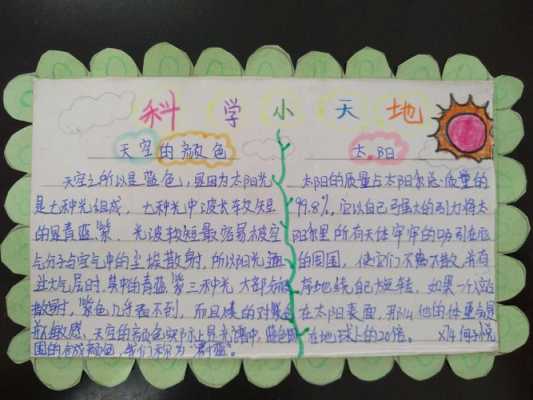 科学小天地
天空的颜色
天空之所以是蓝色,是因为太阳光
是七种光组成,七种光中波长较短
的是青蓝紫,光波较短最容易被空
气分子与空气中的尘埃散射,所以阳光
过大气层时,其中的青蓝紫三种光大部分
散射,紫色几乎看不到,而且
敏感,天空的颜色实际上是光谱中蓝色
的合成颜色,我们称为"蔚蓝"。
太阳
太阳的质量占太阳系总质量的
99.8%,它以自己强大的引力将太
阳系里所有天体牢牢的吸引在
的周围,使它们不离不散,井
有地绕自己旋转,如果一个人
在太阳表面,那么他的体重会是
在地球上的20倍。